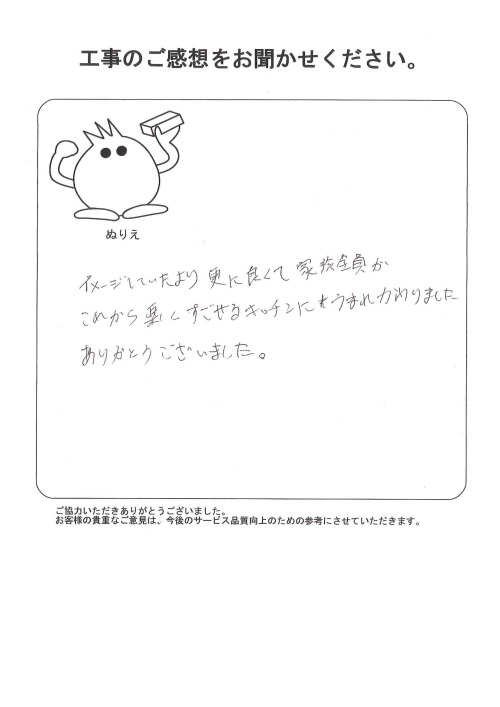 工事のご感想をお聞かせください。
ぬりえ
イメージしていたより更に良くて 家族全員が
これから楽しくすごせるキッチンにうまれカわりました
ありがとうございました。
ご協力いただきありがとうございました。
お客様の貴重なご意見は、今後のサービス品質向上のための参考にさせていただきます。